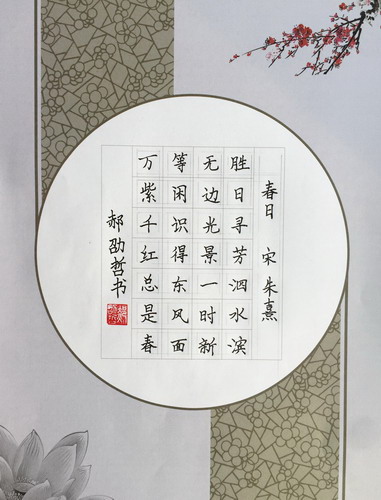 春日 宋 朱熹
胜日寻芳泗水滨
无边光景一时新
等闲识得东风面
万紫千红总是春
郝劭哲书